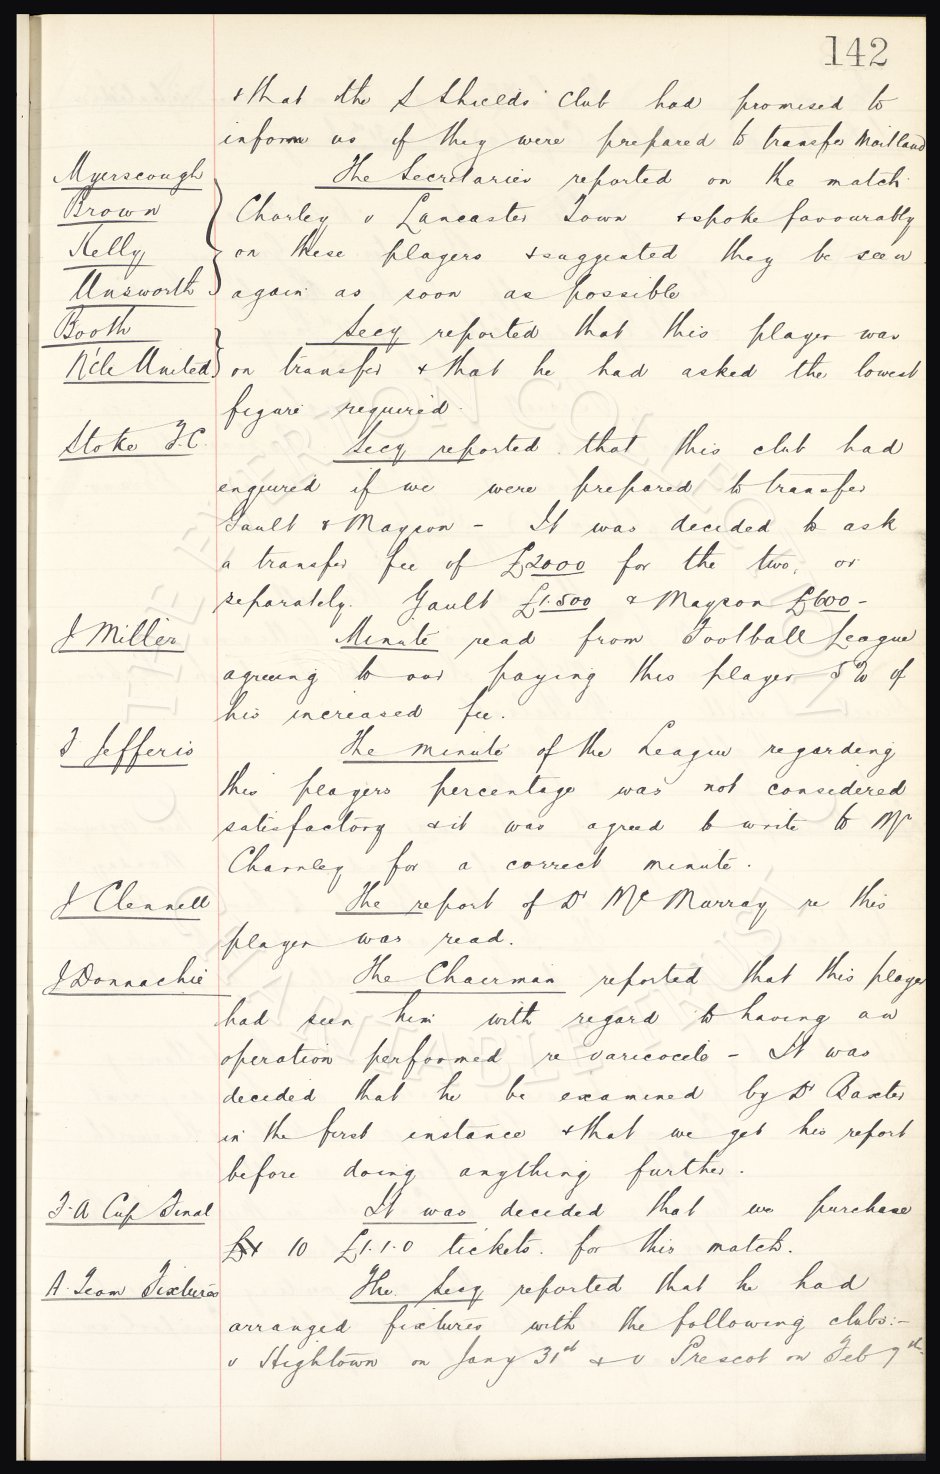 142
& that the S Shields Club had promised to
inform us if they were prepared to transfer Maitland
Myerscough
Brown
Kelly
Unsworth
The Secretaries reported on the match
Chorley v Lancaster Town & spoke favourably
on these players & suggested they be seen
again as soon as possible
Booth
N'cle United
Secy reported that this player was
on transfer & that he had asked the lowest
figure required.
Stoke F.C.
Secy reported that this club had
enquired if we were prepared to transfer
Gault & Mayson - It was decided to ask
a transfer fee of £2000 for the two, or
separately. Gault £1.500 & Mayson £600-
J Miller
Minute read from Football League
agreeing to our paying this player 5% of
his increased fee.
F Jefferis
The minute of the League regarding
this players percentage was not considered
satisfactory & it was agreed to write to Mr
Charnley for a correct minute.
J Clennell
The report of Dr McMurray re this
player was read.
J Donnachie
The Chairman reported that this player
had seen him with regard to having an
operation performed re varicocele - It was
decided that he be examined by Dr Baxter
in the first instance & that we get his report
before doing anything further.
F.A Cup Final
It was decided that we purchase
10 £1.1.0 tickets for this match.
A. Team Fixtures
The Secy reported that he had
arranged fixtures with the following clubs:-
v Hightown on Jany 31st & v Prescot on Feb 7th.
THE EVERTON COLLECTION
CHARITABLE TRUST